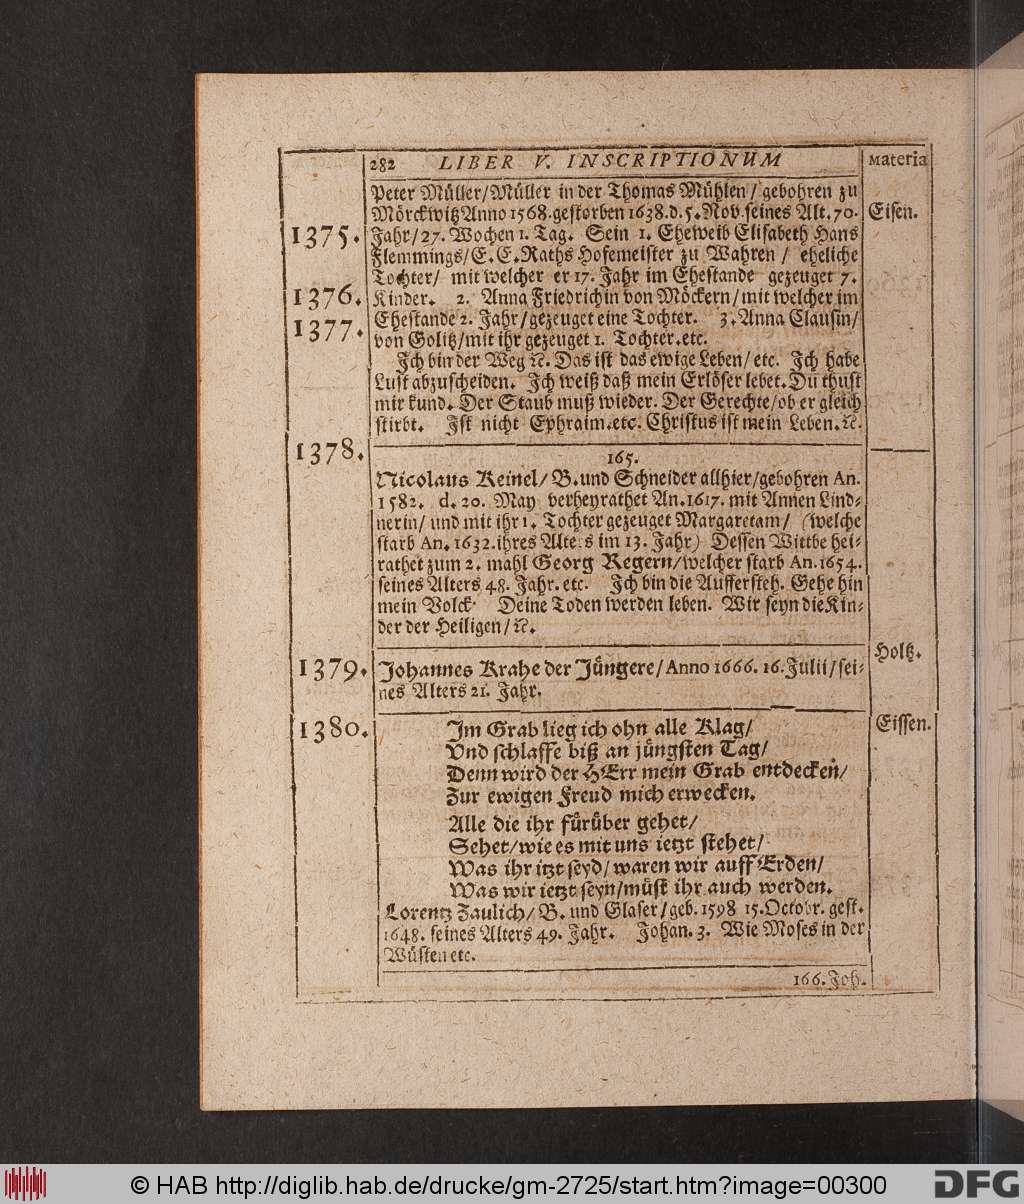 282 LIBER V. INSCRIPTIONUM Materia
Peter Müller/Müller in der Thomas Mühlen/ gebohren zu
Mörckwitz Anno 1568. gestorben 1638. d. 5. Nov. seines Alt. 70. Eisen.
1375. Jahr/27. Wochen 1. Tag. Sein 1. Eheweib Elisabeth Hans
Flemmings/E. E. Raths Hofemeister zu Wahren / eheliche
Tochter/ mit welcher er 17. Jahr im Ehestande gezeuget 7.
1376. Kinder. 2. Anna Friedrichin von Möckern/mit welcher im
1377. Ehestande 2. Jahr/gezeuget eine Tochter. 3. Anna Clausin/
von Golitz/mit ihr gezeuget 1. Tochter. etc.
Ich bin der Weg ꝛc. Das ist das ewige Leben/ etc. Ich habe
Lust abzuscheiden. Ich weiß daß mein Erlöser lebet. Du thust
mir kund. Der Staub muß wieder. Der Gerechte/ob er gleich
stirbt. Ist nicht Ephraim. etc. Christus ist mein Leben. ꝛc.
1378. 165.
Nicolaus Keinel/ B. und Schneider allhier/gebohren An.
1582. d. 20. May verheyrathet An. 1617. mit Annen Lind-
nerin/ und mit ihr 1. Tochter gezeuget Margaretam/ (welche
starb An. 1632. ihres Alters im 13. Jahr) Dessen Wittbe hei-
rathet zum 2. mahl Georg Regern/welcher starb An. 1654.
seines Alters 48. Jahr. etc. Ich bin die Auffersteh. Gehe hin
mein Volck. Deine Toden werden leben. Wir seyn die Kin-
der der Heiligen/ ꝛc.
Holtz.
1379. Johannes Krahe der Jüngere/Anno 1666. 16. Julii/sei-
nes Alters 21. Jahr.
1380. Im Grab lieg ich ohn alle Klag/ Eissen.
Vnd schlaffe biß an jüngsten Tag/
Denn wird der HErr mein Grab entdecken/
Zur ewigen Freud mich erwecken.
Alle die ihr fürüber gehet/
Sehet/wie es mit uns ietzt stehet/
Was ihr itzt seyd/ waren wir auff Erden/
Was wir ietzt seyn/müst ihr auch werden.
Lorentz Zaulich/ B. und Glaser/geb. 1598 15. Octobr. gest.
1648. seines Alters 49. Jahr. Johan. 3. Wie Moses in der
Wüsten etc.
166. Joh.
© HAB http://diglib.hab.de/drucke/gm-2725/start.htm?image=00300
DFG